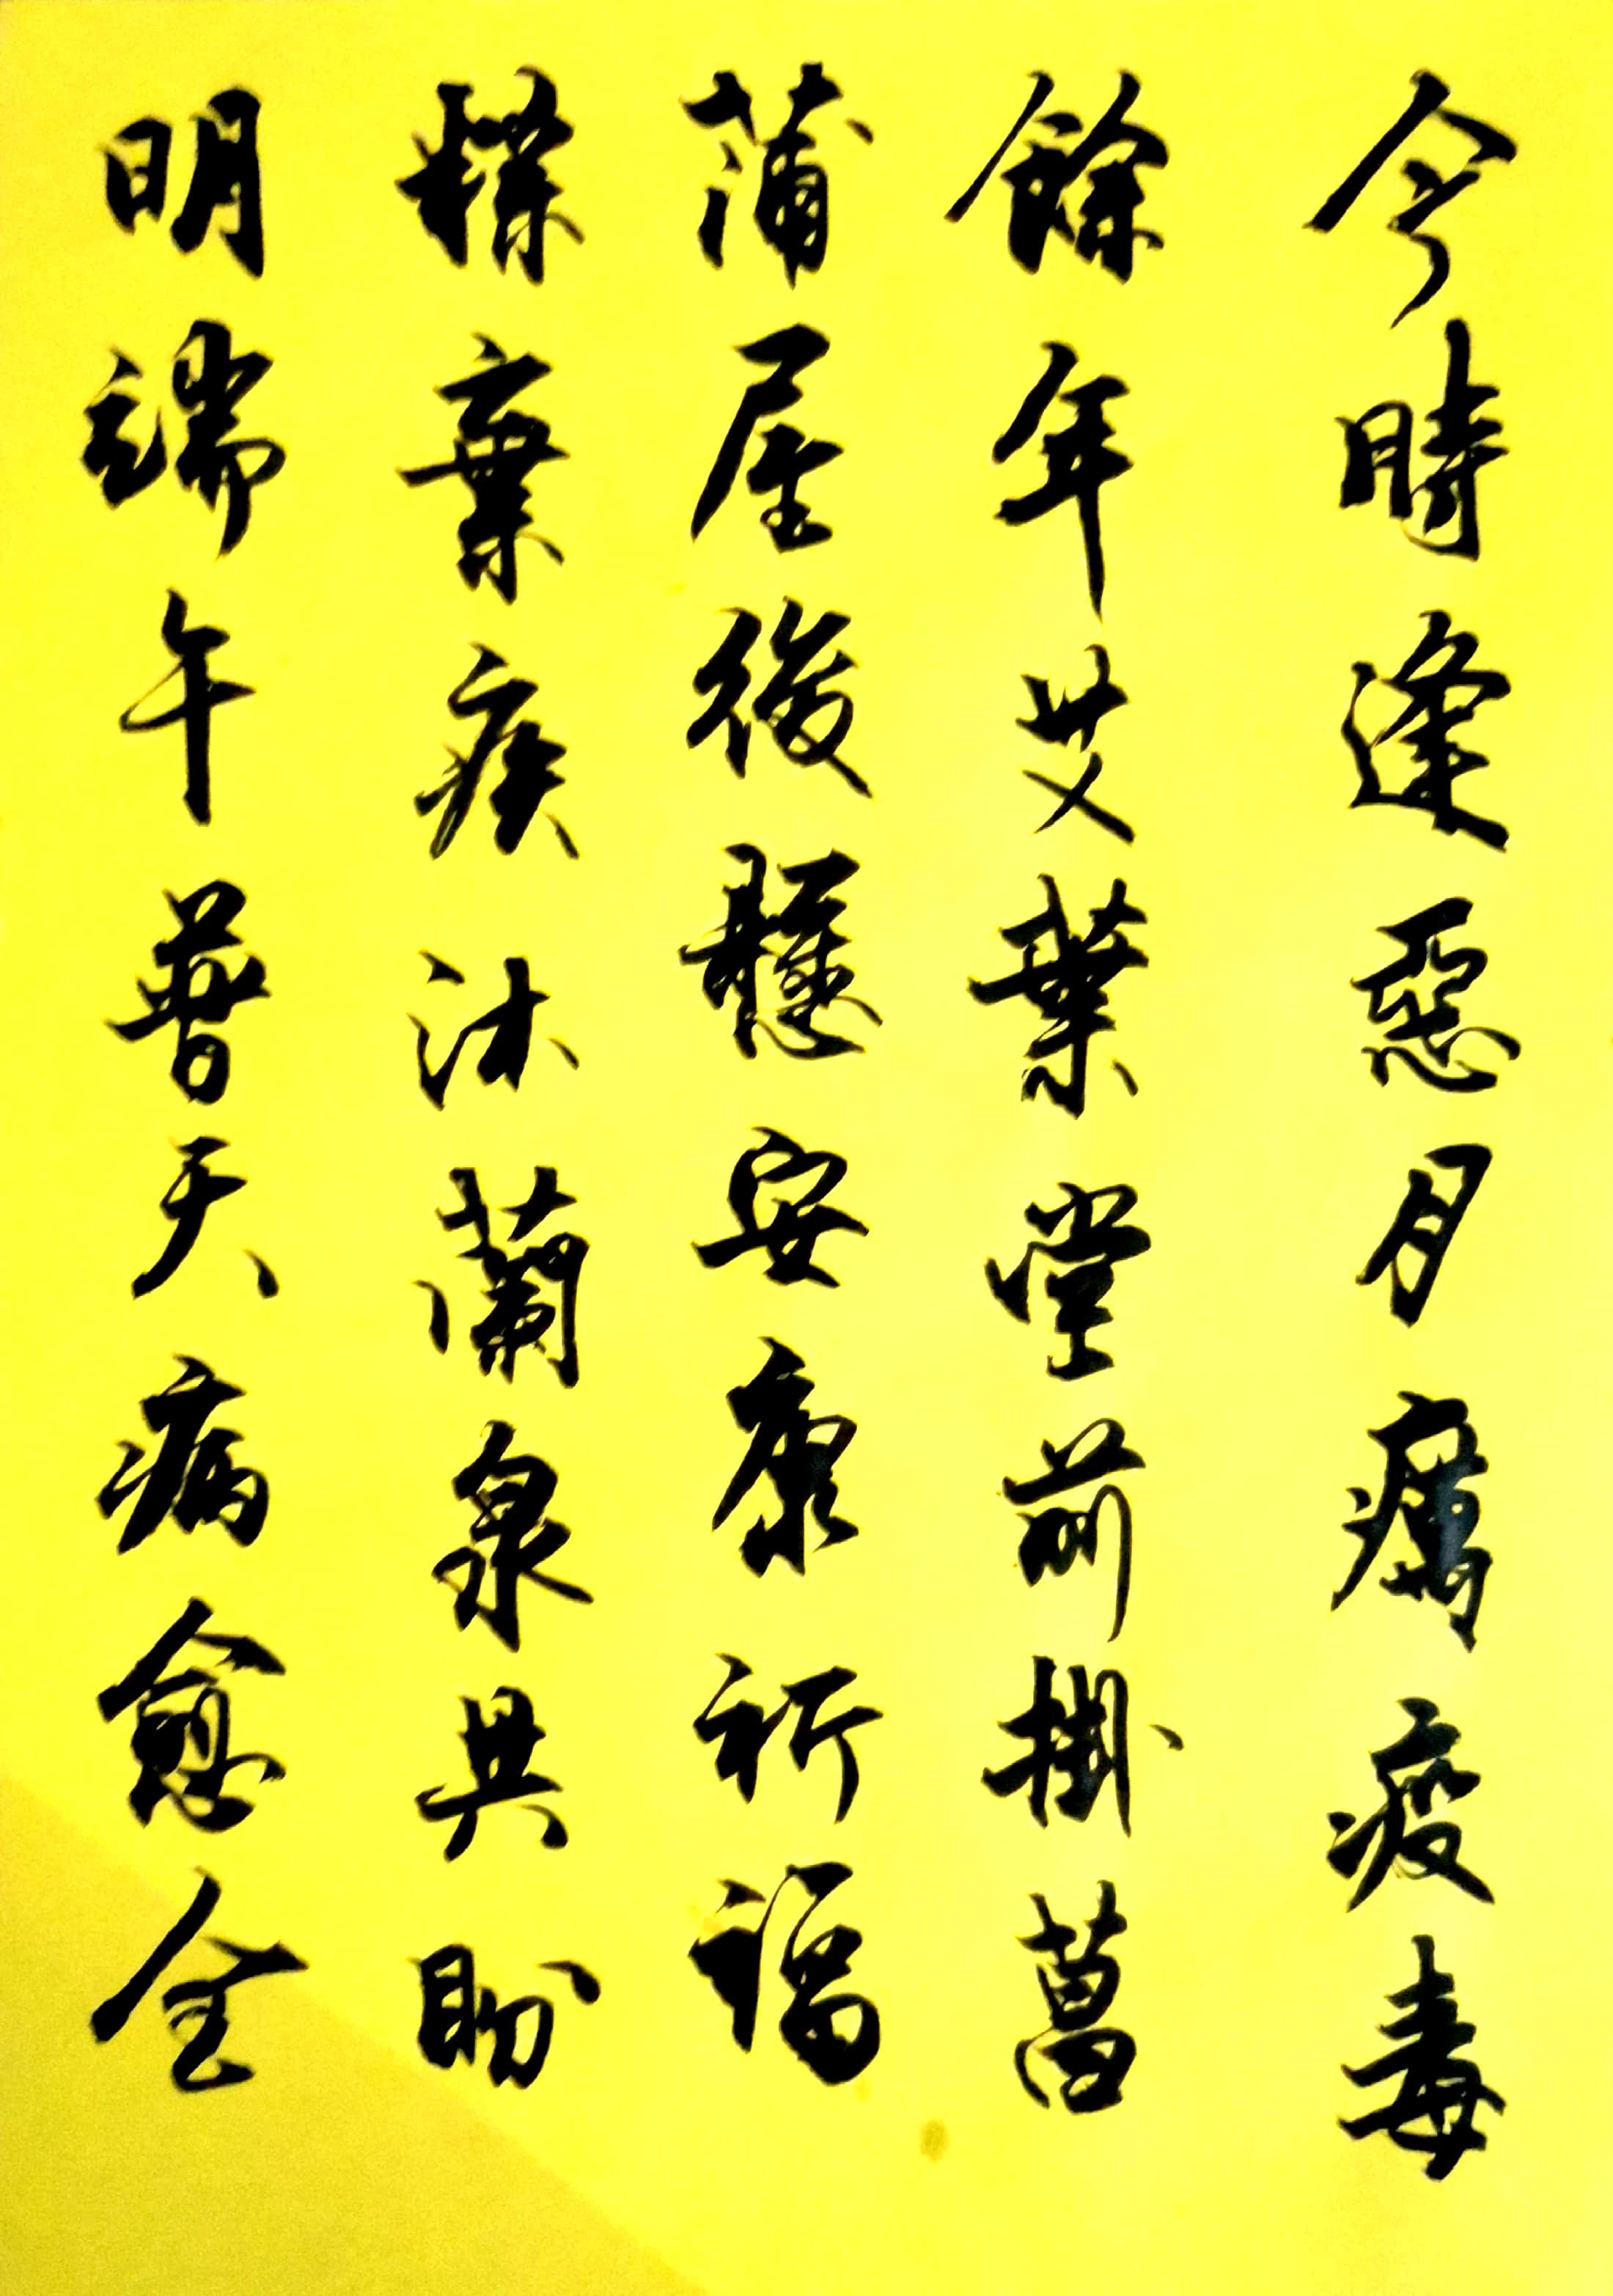 今時逢惡月癘疫毒
餘年艾葉堂前掛菖
蒲屋後懸安康祈福
粽棄疾沐蘭泉共盼
明端午普天病愈全